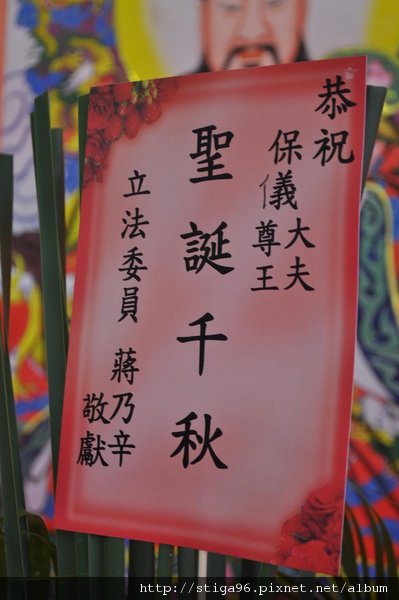 恭祝
保儀大夫
尊王
聖誕千秋
立法委員 蔣乃辛
敬獻
http://stiga96.pixnet.net/album